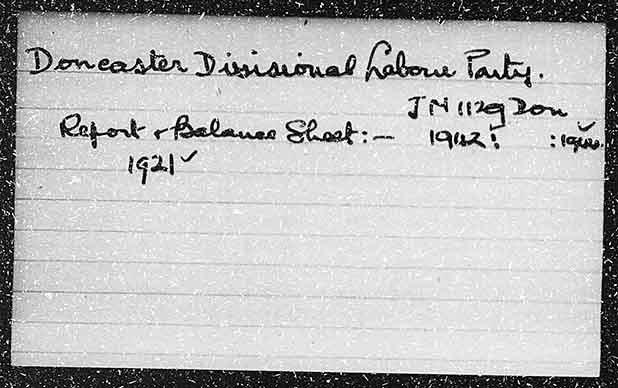 Doncaster Divisional Labour Party.
JN 1129 Don
Report & Balance Sheet:–
1921 ✓